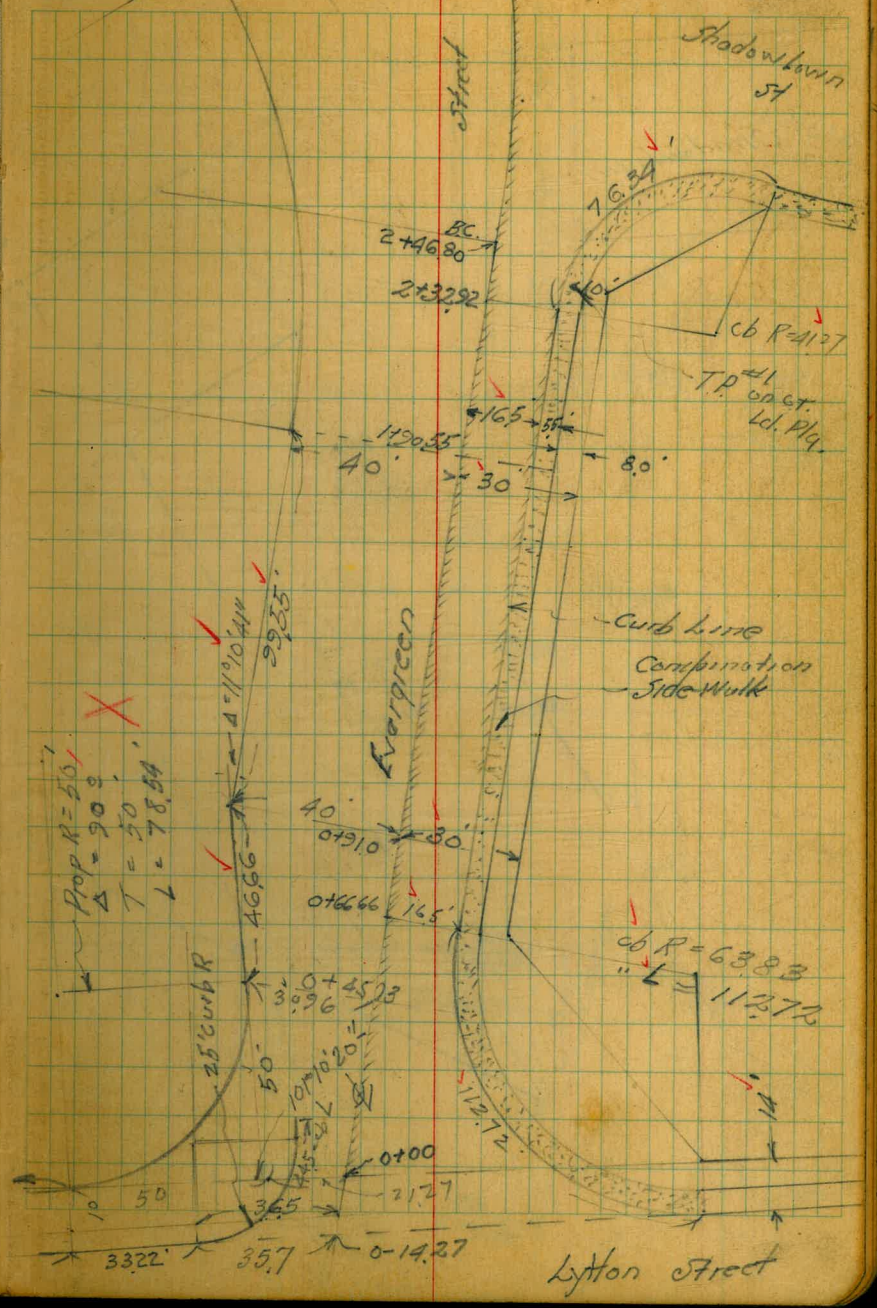 Shadowlawn
St
Street
76.34'
B.C.
2+46.80
2+32.92
10'
cb R=41.27
T.P. #1
on ct.
Ld. Plg.
16.5
5.5'
1+90.55
40'
30
8.0'
99.55'
Δ=11°10'41"
Evergreen
Curb Line
Combination
Side Walk
Prop R=50'
Δ = 90°
T = 50'
L = 78.54'
46.66
40'
0+91.0
30'
0+66.66
16.5'
cb R = 63.83
"L" = 112.72
25' curb R
50'
112.72
14'
0+00
21.27
50
10
36.5
33.22'
35.7
0-14.27
Lytton Street